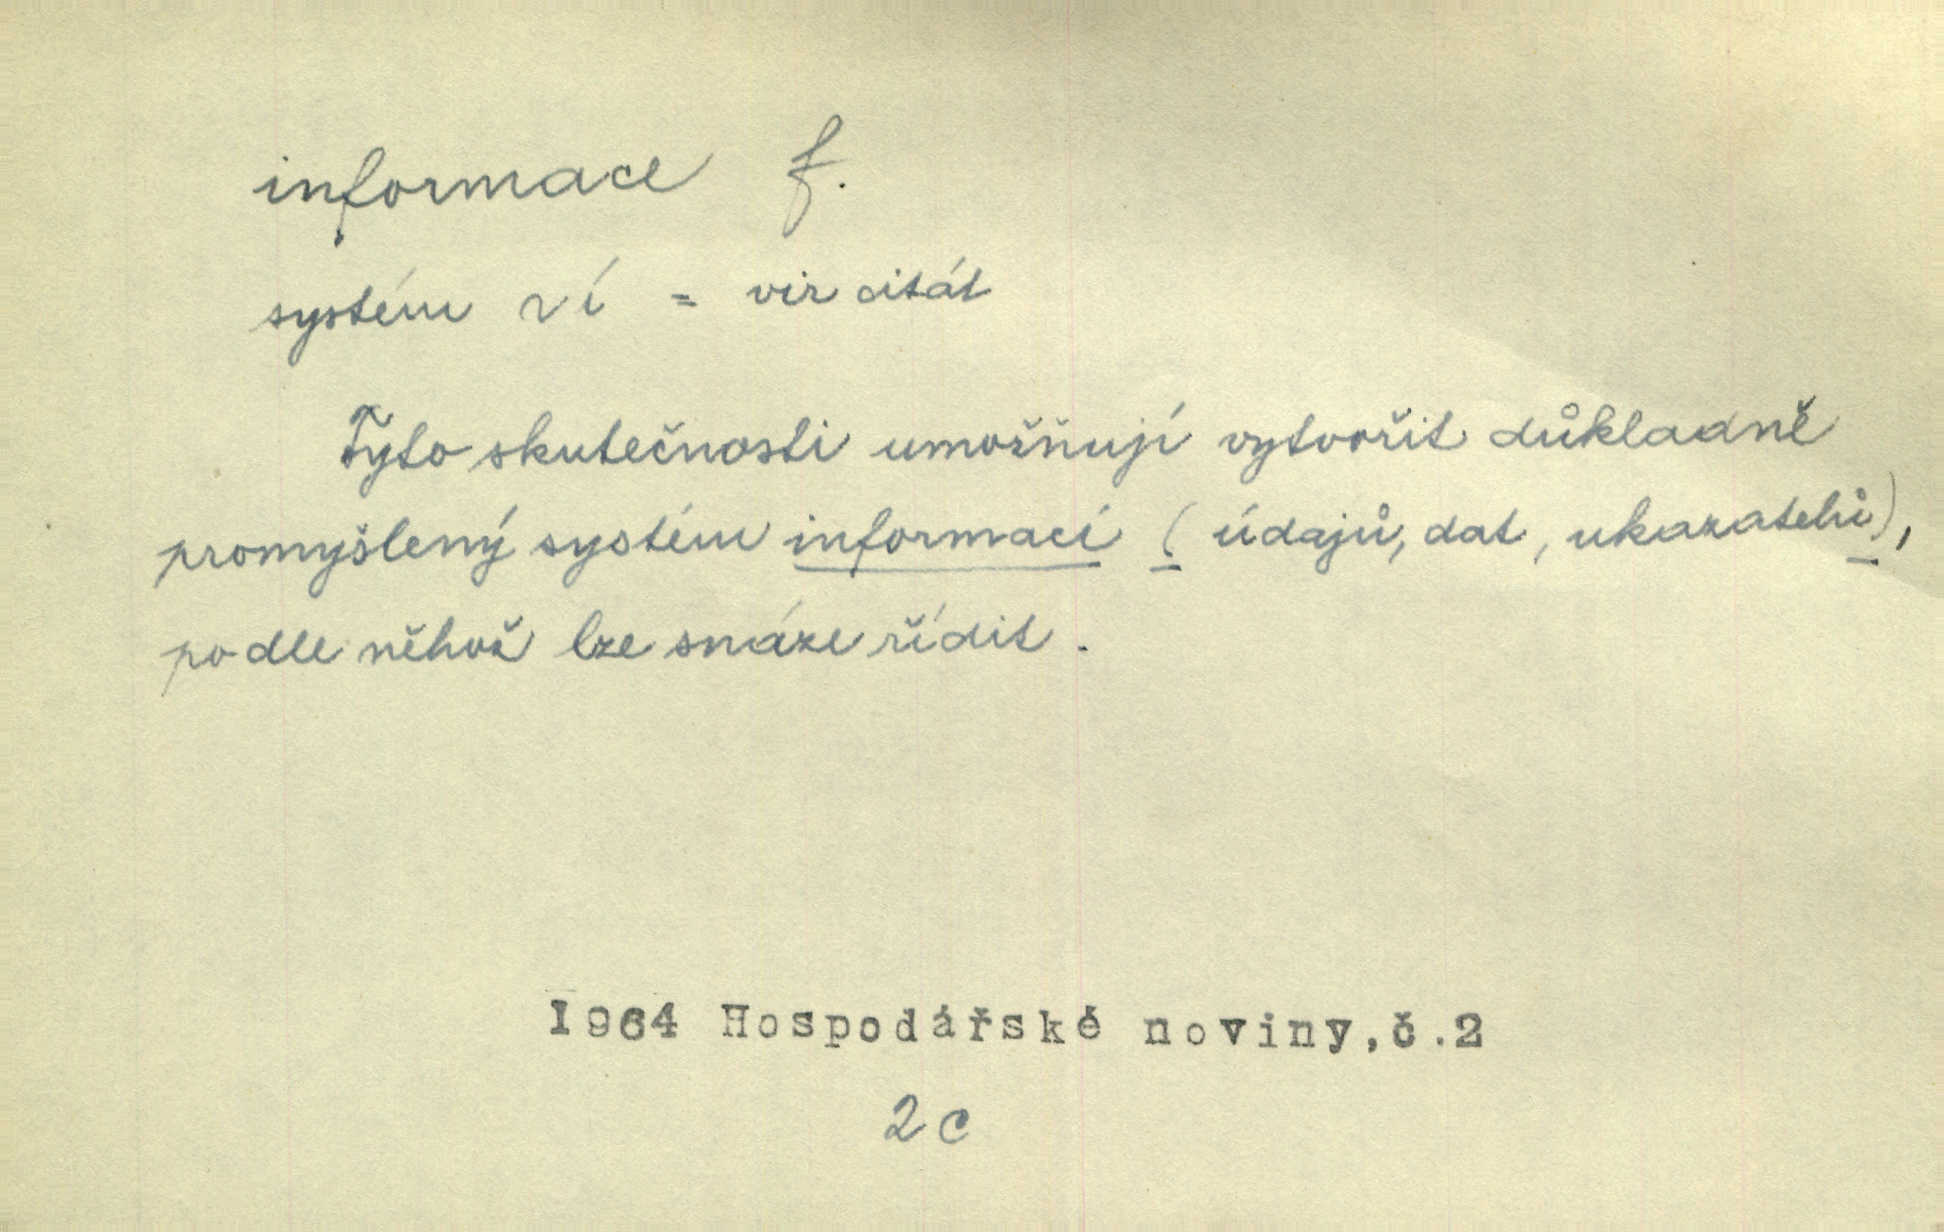 informace f.
systém ~í = viz citát
Tyto skutečnosti umožňují vytvořit důkladně
promyšlený systém informací (údajů, dat, ukazatelů),
podle něhož lze snáze řídit.
1964 Hospodářské noviny,č.2
2c